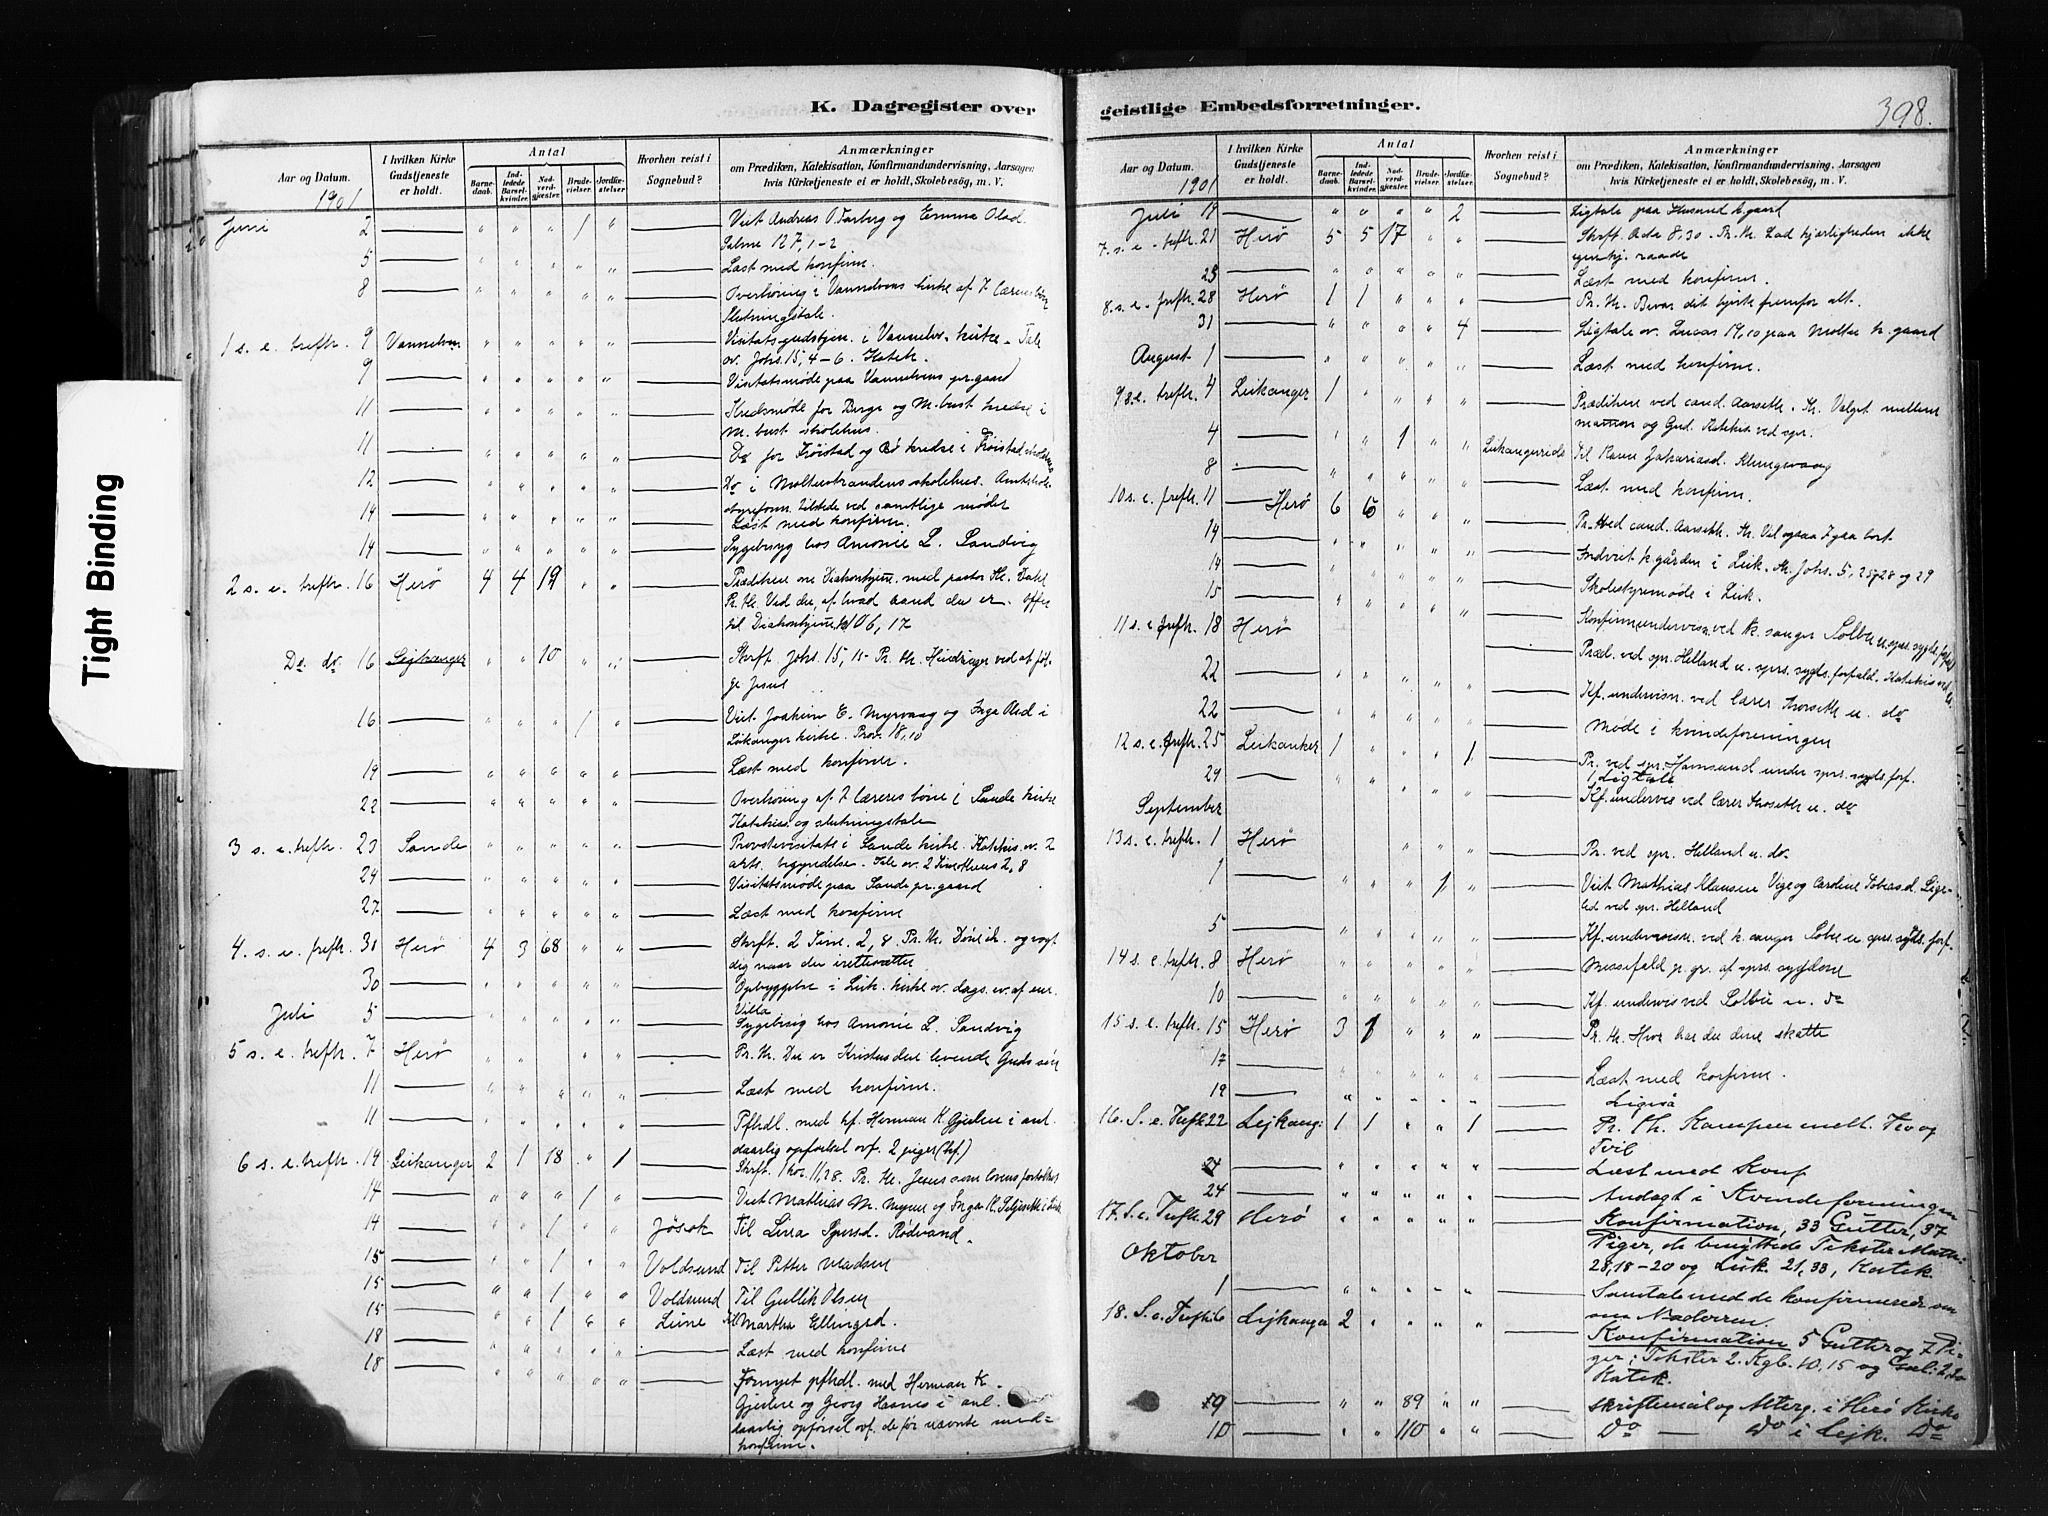 K. Dagregister over
Aar og Datum.
I hvilken Kirke Gudstjeneste er holdt.
Antal
Barnedaab.
Indledede Barselkvinder.
Nadverdgjæster.
Brudevielser.
Jordfæstelser.
Hvorhen reist i Sognebud?
Anmærkninger
om Prædiken, Katekisation, Konfirmandundervisning, Aarsagen
hvis Kirketjeneste ei er holdt, Skolebesög, m. V.
1901
Juni 2 " " " / " Viet Andreas O. Tarberg og Emma Olad.
Salme 127, 1-2
5 " " " " " Læst med konfirm.
8 " " " " " Overhøring i Vannelvens kirke af 7
Slutningstale.
1 s. e. trefh. 9 Vannelven " " " " " Visitatsgudstjen. i Vannelv. kirke. Tale
ov. Johs. 15, 4-6. Katek.
9 " " " " " Visitatsmøde paa Vannelvens pr.gaard
11 " " " " " Kredsmøde for Berge og M.bust kredse i
M.bust skolehus.
11 " " " " " Do for Frøistad og Bø kredse i Frøistad
12 " " " " " Do i Moltustrandens skolehus.
tilstede ved samtlige møder
14 " " " " " Læst med konfirm.
14 " " " " " Sygebesøg hos Amonie L. Sandvig
2 s. e. trefh. 16 Herø 4 4 12 " " med pastor
Pr. th. Ved du, af hvad aand du er. Offer
til 106, 17
Do do 16 Leikanger " " 10 " " Skrft. Johs. 15, 15- Pr. th. Hindringer ved at føl-
ge Jesus
16 " " " / " Viet Joakim E. Myrvaag og Inga Olsd i
Leikanger kirke. Prov. 18, 10
19 " " " " " Læst med konfirm.
22 " " " " " Overhøring af 7 læreres børn i Sande kirke
Katekis. og slutningstale
3 s. e. trefh. 23 Sande " " " " " Provstevisitats i Sande kirke. Katekis. ov. 2
arts. begyndelse. Tale ov. 2 Timotheus 2, 8
24 " " " " " Visitatsmøde paa Sande pr.gaard
27 " " " " " Læst med konfirm
4. s. e. trefh. 30 Herø 4 3 68 " " Skrft. 2 Tim. 2, 8 Pr. th. Døm ik. og vogt
dig naar du irettesætter
30 " " " " " Opbyggelse i Leik. kirke ov. dags. ev. af em.
Villa
Juli 5 " " " " " Sygebesøg hos Amonie L. Sandvig
5 s. e. trefh. 7 Herø " " " " " Pr. th. Du er Kristus den levende Guds søn
11 " " " " " Læst med konfirm.
11 " " " " " Pfhdl. med kf. Herman K. Gjerlien i anl.
daarlig opførsel ovf. 2 piger (kf.)
6 s. e. trefh. 14 Leikanger 2 1 18 " 1 Skrft. 1 Kor. 11, 28. Pr. th. Jesus som lovens fortolker
14 " " " / " Viet Mathias M. Myren og Inga K.
14 " " / " " Jøsok Til Lina Sjursd. Rødvand.
15 " " / " " Voldsund Til Petter Madsen
15 " " / " " Voldsund Til Gullik Olsen
15 " " / " " Leine Til Martha Ellingsd.
18 " " " " " Læst med konfirm
18 " " " " " Fornyet pfhdl. med Herman K.
Gjerlien og Georg Hasnes i anl.
daarlig opførsel ovf. de før nævnte med-
konfirm.
geistlige Embedsforretninger.
398.
Aar og Datum.
I hvilken Kirke Gudstjeneste er holdt.
Antal
Barnedaab.
Indledede Barselkvinder.
Nadverdgjæster.
Brudevielser.
Jordfæstelser.
Hvorhen reist i Sognebud?
Anmærkninger
om Prædiken, Katekisation, Konfirmandundervisning, Aarsagen
hvis Kirketjeneste ei er holdt, Skolebesög, m. V.
1901
Juli 19 " " " " 2 Ligtale paa Husund k.gaard
7. s. e. trefh. 21 Herø 5 5 17 " " Skrft. Acta 8, 30. Pr. th. Lad kjærligheden ikke
egenkj. raade
25 " " " " " Læst med konfirm.
8. s. e. trefh. 28 Herø 1 1 " " " Pr. th. Bevar dit hjerte fremfor alt.
31 " " " " 4 Ligtale ov. Lucas 19, 10 paa Moltu k.gaard
August 1 " " " " " Læst med konfirm.
9 s. e. trefh. 4 Leikanger 1 " " " " Prædiken ved cand. Aarseth. Th. Valget mellem
mammon og Gud. Katekis. ved spr.
4 " " 1 " " Leikangereide Til Karen Zakariasd. Klungevaag
8 " " " " " Læst med konfirm.
10 s. e. trefh. 11 Herø 6 6 " " " Pr. ved cand. Aarseth. Th. Vil ogsaa I gaa bort
14 " " " " " Indviet k.gården i Leik. Th. Johs. 5, 25, 28 og 29
14 " " " " " Skolestyremøde i Leik.
15 " " " " " Konfirm.undervisn. ved k.sanger Solbu u. sprs. sygds. forf.
11 s. e. trefh. 18 Herø Præd. ved spr. Helland u. sprs. sygds. forfald. Katekis
22 " " " " " Kf. undervisn. ved lærer Thorseth u. do
22 " " " " " Møde i kvindeforeningen
12 s. e. trefh. 25 Leikanker 1 " " " 1 Pr. ved spr. Hamsund under sprs. sygds. forf.
1 Ligtale
29 " " " " " Kf. undervis ved lærer Thorseth u. do
September
13 s. e. trefh. 1 Herø " " " Pr. ved spr. Helland u. do
1 " " " 1 " Viet Mathias Klausen Vige og Cardine Tobiasd. Lige-
led ved spr. Helland
5 " " " " " Kf. undervisn. ved k.sanger Solbu u. sprs. sygds. forf.
14 s. e. trefh. 8 Herø " " " " " Messefald p. gr. af sprs. sygdom
10 " " " " " Kf. undervis ved Solbu u. do
15 s. e. trefh. 15 Herø 3 1 " " " Pr. th. Hvor har du dine skatte
17 " " " " " Læst med konfirm.
19 " " " " " Ligesaa
16. S. e. Trefh. 22 Lejkang: 1 1 " " 1 Pr. Th. Kampen mell. Tro og
Tvil
24 " " " " " Læst med Konf
24 " " " " " Andagt i Kvindeforeningen
17. S. e. Trefh. 29 Herø " " " " " Konfirmation, 33 Gutter, 37
Piger, de benyttede Tekster Math:
28, 18-20 og Luk. 21, 33, Katek.
Oktober
1 " " " " " Samtale med de konfirmerede om
Nadveren.
18. S. e. Trefh. 6 Lejkanger 2 " " " " Konfirmation 5 Gutter og 7 Pi-
ger; Tekster 2. Kgb. 10, 15 og Gal. 2, 20
Katek.
9 " " 89 " " Skriftemål og Alterg. i Herø Kirke
10 " " 110 " " Do — Do i Lejk. Do
Tight Binding